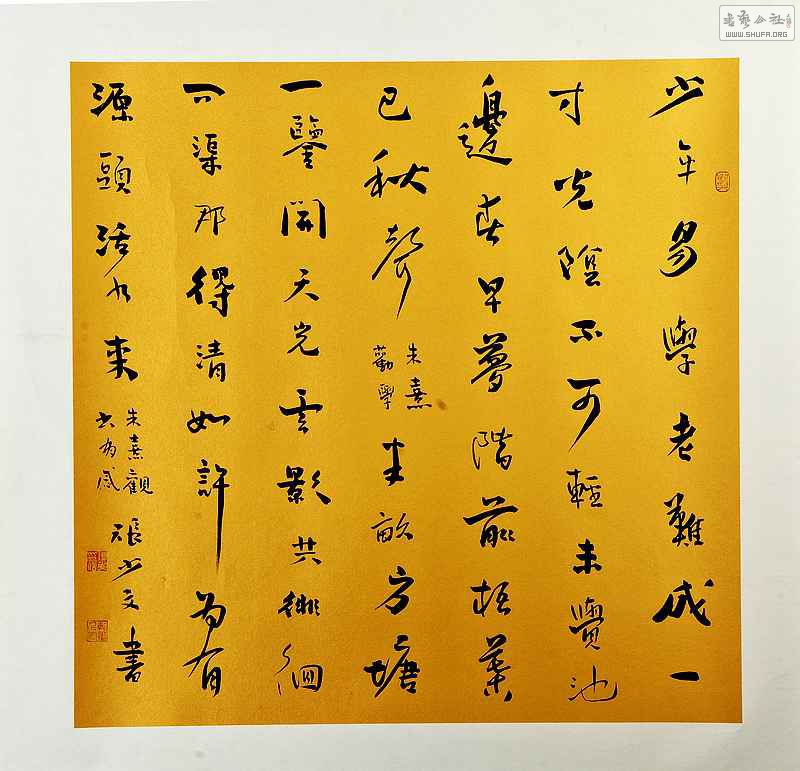 少年易學老難成一
寸光陰不可輕未覺池
邊春早夢階前梧葉
已秋聲
朱熹
勸學
半畝方塘
一鑒開天光云影共徘徊
問渠那得清如許為有
源頭活水來
朱熹觀
书有感
張少文書
書藝公社
WWW.SHUFA.ORG